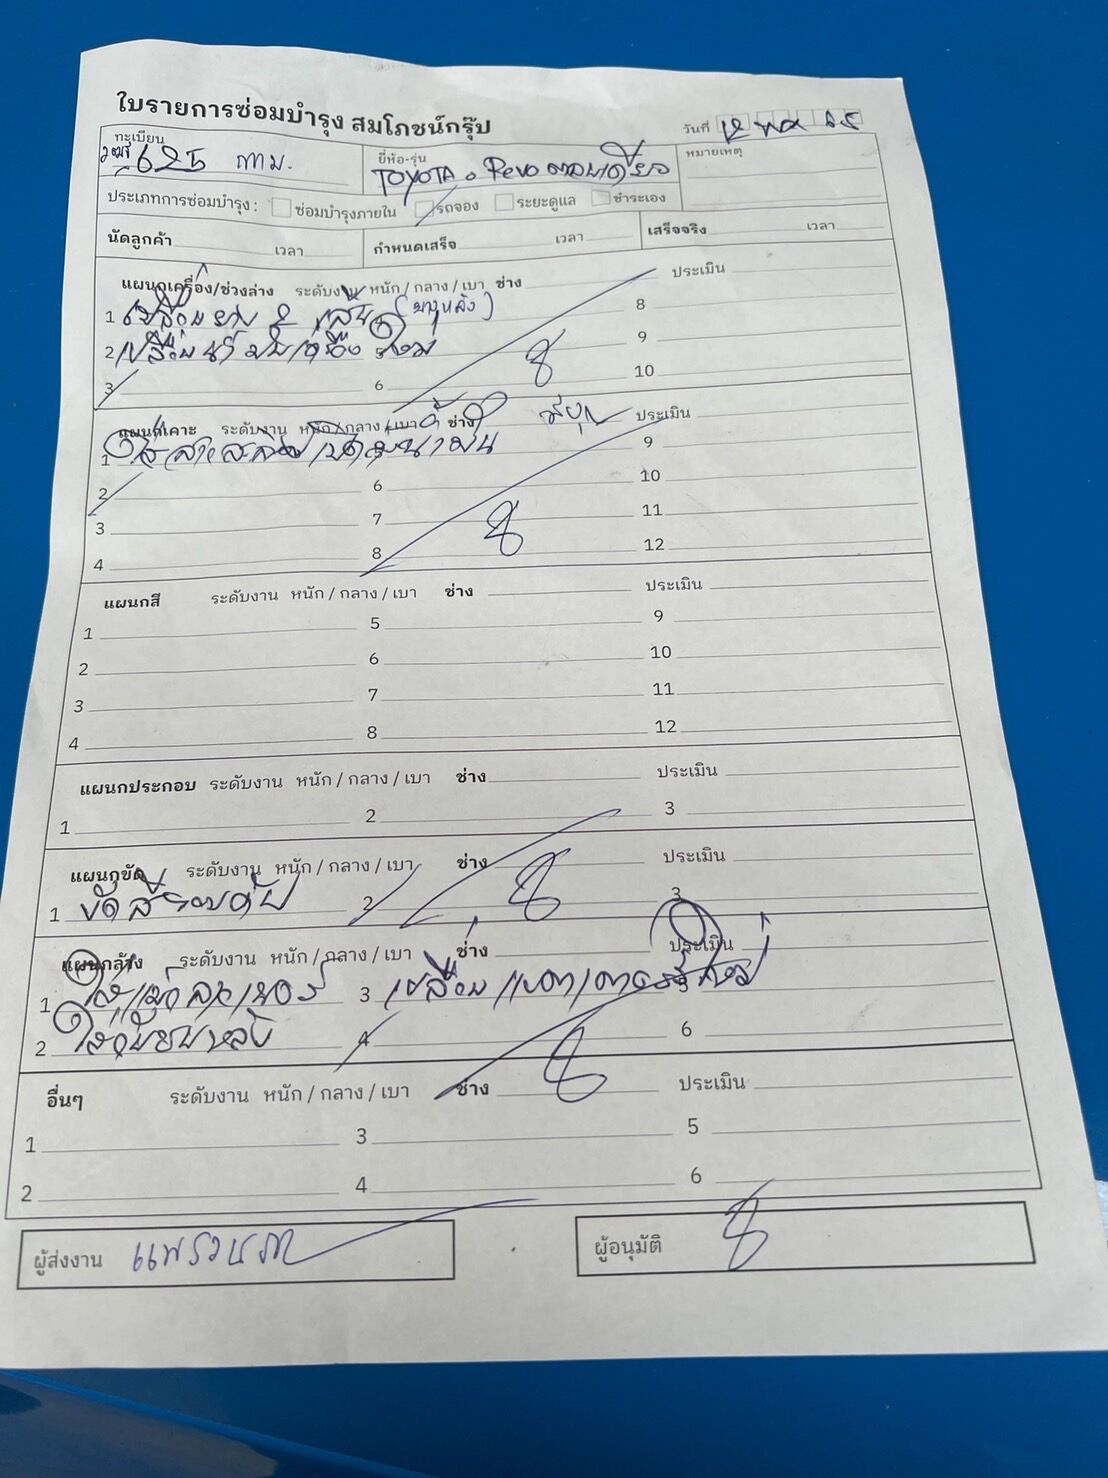 ใบรายการซ่อมบำรุง สมโภชน์กรุ๊ป
วันที่ 12 พค 65
ทะเบียน ยี่ห้อ-รุ่น หมายเหตุ
กทม. TOYOTA Revo ตอนเดียว
ประเภทการซ่อมบำรุง : ซ่อมบำรุงภายใน รถจอง ระยะดูแล ชำระเอง
นัดลูกค้า เวลา กำหนดเสร็จ เวลา เสร็จจริง เวลา
แผนกเครื่อง/ช่วงล่าง ระดับงาน หนัก / กลาง / เบา ช่าง ประเมิน
1 เปลี่ยนยาง 2 เส้น 8
2 เปลี่ยน 9
3 6 10
แผนกเคาะ ระดับงาน หนัก / กลาง / เบา ช่าง ประเมิน
1 ใส่ 9
2 6 10
3 7 11
4 8 12
แผนกสี ระดับงาน หนัก / กลาง / เบา ช่าง ประเมิน
1 5 9
2 6 10
3 7 11
4 8 12
แผนกประกอบ ระดับงาน หนัก / กลาง / เบา ช่าง ประเมิน
1 2 3
แผนกขัด ระดับงาน หนัก / กลาง / เบา ช่าง ประเมิน
1 ขัดสีรอบคัน 2 3
แผนกล้าง ระดับงาน หนัก / กลาง / เบา ช่าง ประเมิน
1 ใส่ 3 เปลี่ยนแบตเตอรี่ใหม่ 5
2 4 6
อื่นๆ ระดับงาน หนัก / กลาง / เบา ช่าง ประเมิน
1 3 5
2 4 6
ผู้ส่งงาน ผู้อนุมัติ